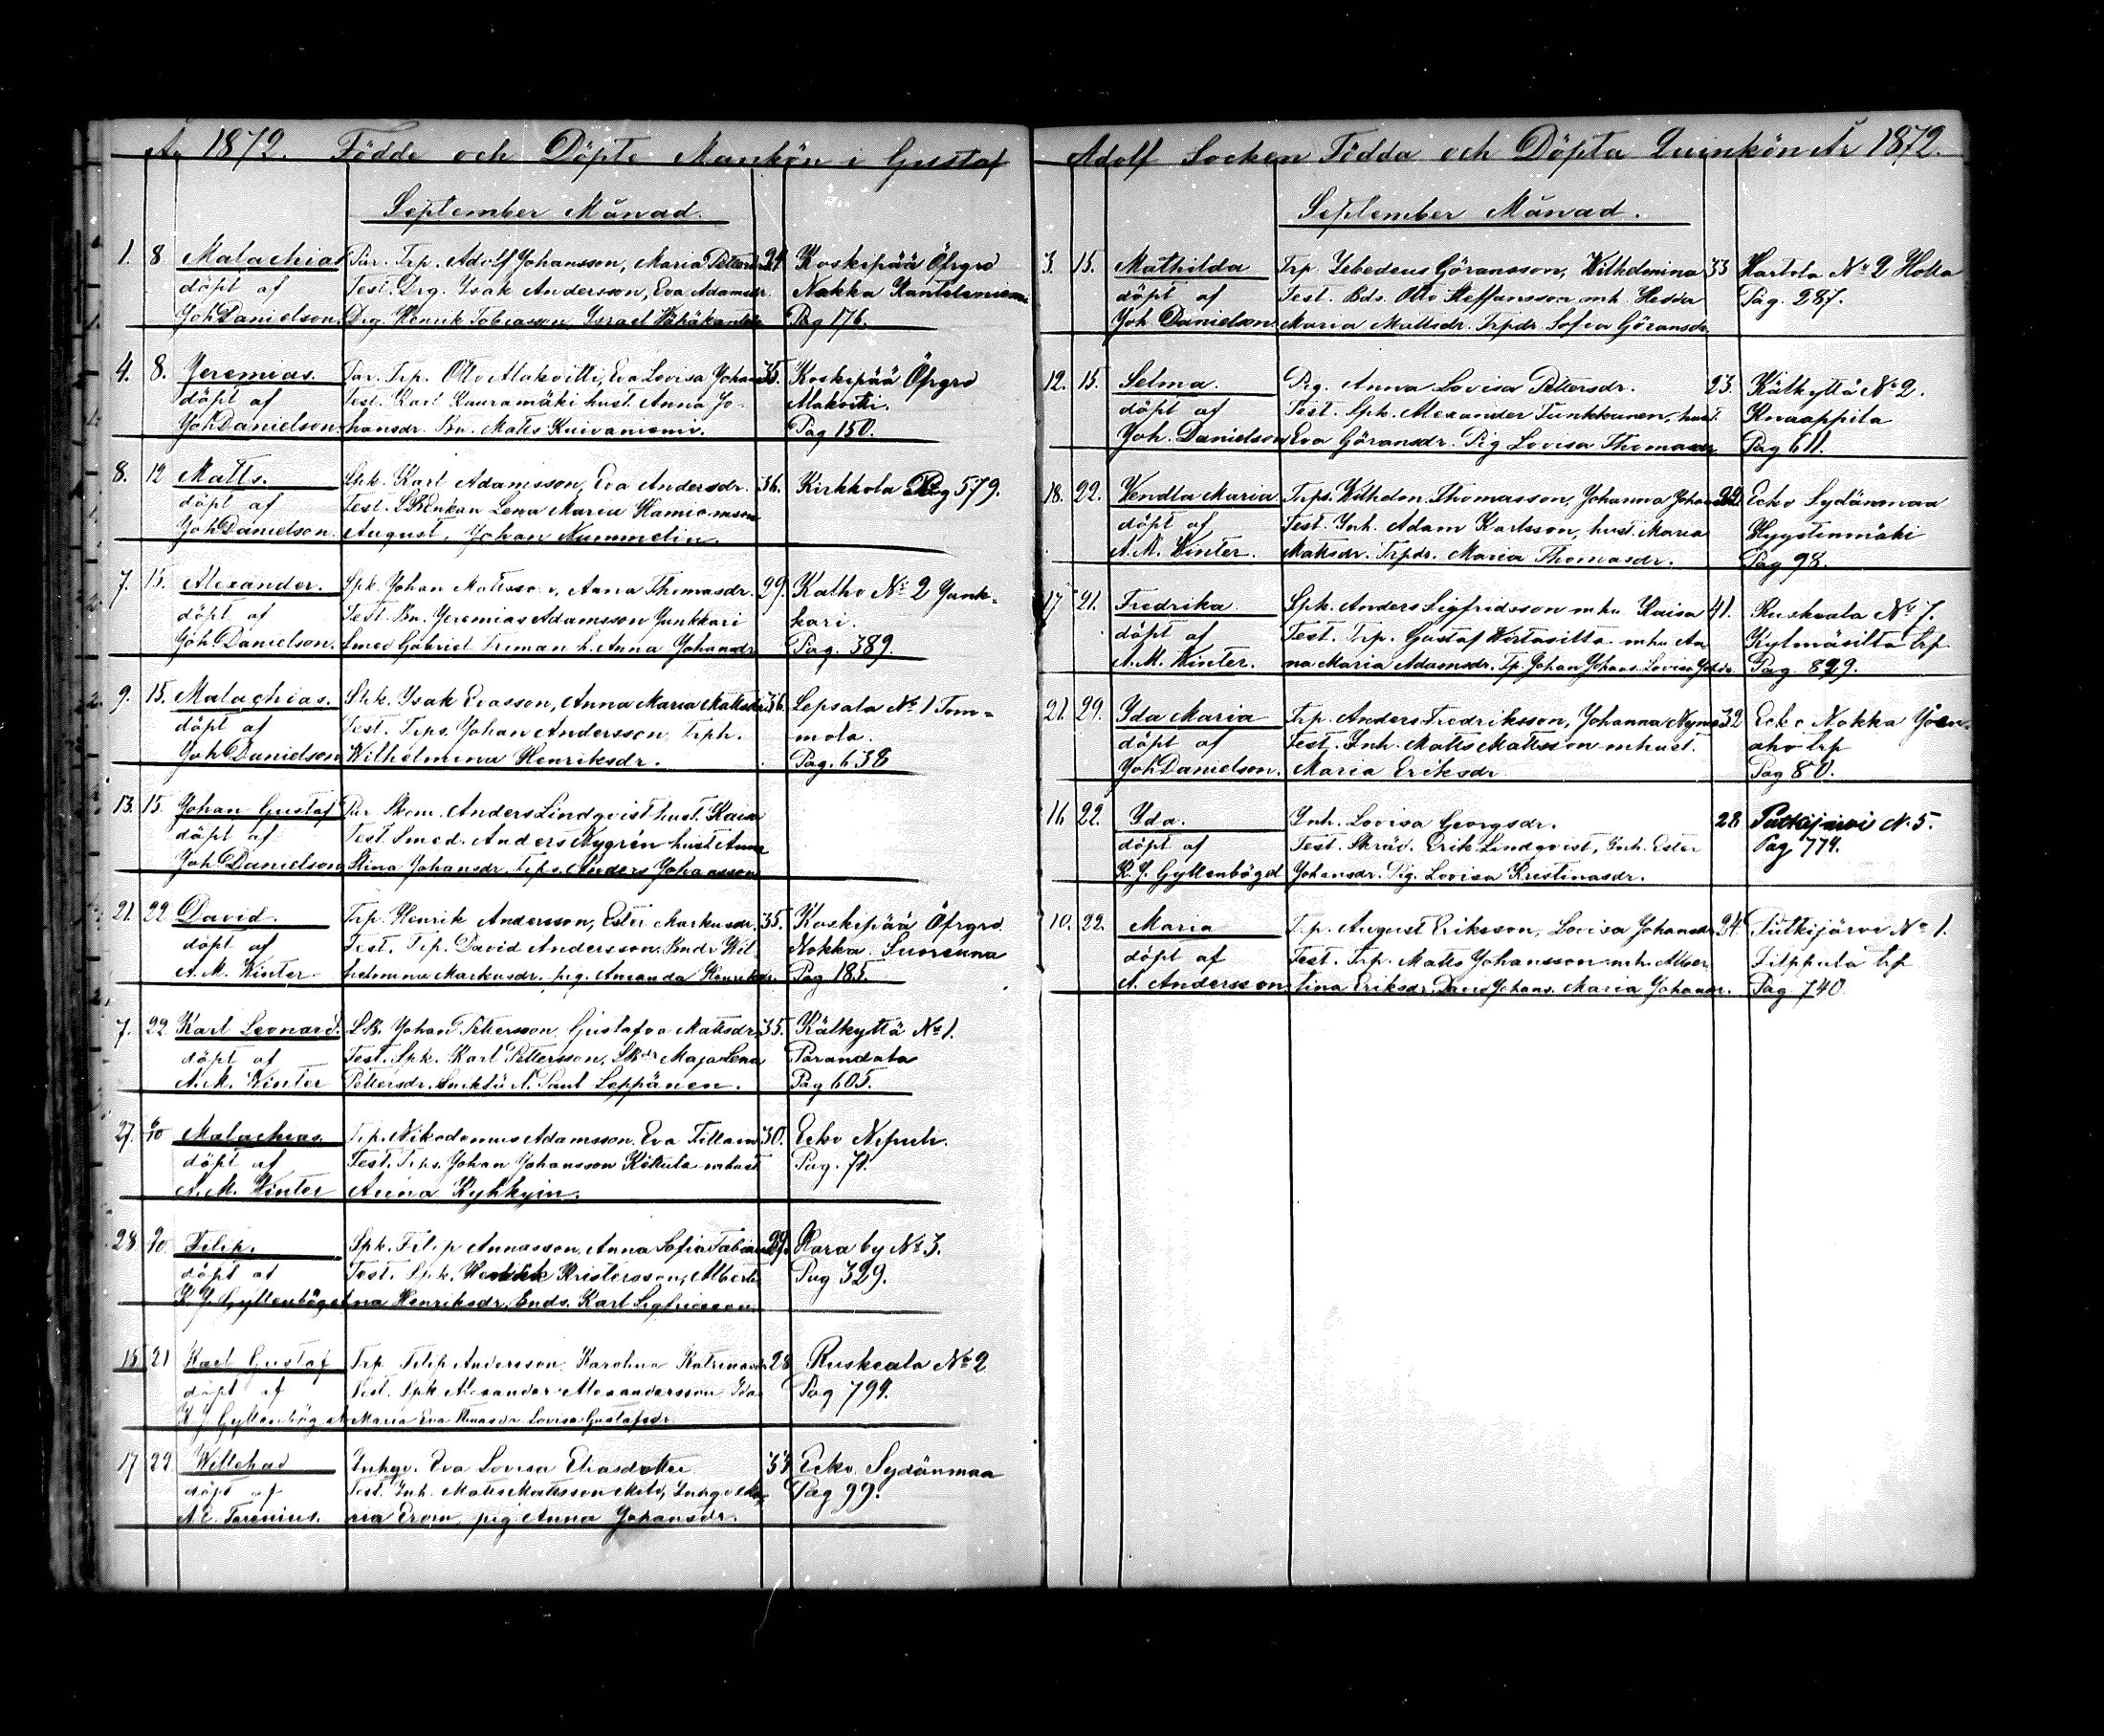 År 1872. Födde och Döpte Mankön i Gustaf
September Månad.
1. 8. Malachias Par. Trp. Adolf Johansson, Maria Pettersdr 24. Koskipää Öfrgrd
döpt af Test. Drg. Isak Andersson, Eva Adamsdr. Nokka Kantelniemi
Joh Danielson. Drg. Henrik Tobiasson, Israel Pag 176.
4. 8. Jeremias. Par. Trp. Otto Alakoitti, Eva Lovisa Johansdr 35. Koskipää Öfrgrd
döpt af Test. Karl Lauramäki hust. Anna Jo- Alakoitti.
Joh Danielson. hansdr. Bn. Matts Kuivaniemi. Pag 150.
8. 12 Matts. Spk. Karl Adamsson, Eva Andersdr. 36. Kirkkola Pag 579.
döpt af Test. Enkan Lena Maria
Joh Danielson. August, Johan Nummelin.
7. 15. Alexander. Spk. Johan Matsson, Anna Thomasdr. 29. Kalho No 2 Junk-
döpt af Test. Bn. Jeremias Adamsson Junkkari kari.
Joh Danielson. Smed Gabriel Freman h. Anna Johansdr Pag. 389.
9. 15. Malachias. Spk. Isak Evasson, Anna Maria Mattsdr 36. Lepsala No 1 Tom-
döpt af Test. Trps. Johan Andersson, Trph. mola.
Joh Danielson Wilhelmina Henriksdr. Pag. 638
13. 15. Johan Gustaf Par Skom. Anders Lindqvist hust. Kaisa
döpt af Test. Smed. Anders Nygrén hust Anna
Joh Danielson Stina Johansdr. Trps. Anders Johansson
21. 22 David. Trp. Henrik Andersson, Ester Markusdr. 35. Koskipää Öfrgrd.
döpt af Test. Trp. David Andersson, Bndr Wil- Nokka Suorinna
A. M. Winter helmina Markusdr. pig. Amanda Henriksdr. Pag 185.
7. 22. Karl Leonard. LB. Johan Pettersson, Gustafva Mattsdr 35. Kälkyttä No 1.
döpt af Test. Spk. Karl Pettersson, Maja Lena Parandala
A. M. Winter Pettersdr. Paul Leppänen. Pag 605.
27. 30 Malachias. Trp. Nikodemus Adamsson. Eva Tillain 30. Ecko Nipuli.
döpt af Test. Trps. Johan Johansson Kokkula mhust Pag. 71.
A. M. Winter Anna Kyhkyin.
28. 30. Filip. Spk. Filip Annasson, Anna Sofia Fabiansdr 29. Kara by No 3.
döpt af Test. Spk. Henrik Kristersson, Alberti- Pag 329.
K. J. Gyllenbögel na Henriksdr. Bnds. Karl Sigfridsson
15 21 Karl Gustaf Trp Filip Andersson, Karolina Katrinasdr 28 Ruskeala No 2
döpt af Test. Spk Alexander Alexandersson Ida Pag 799.
K J Gyllenbögel Maria Eva Lovisa Gustafsdr
17 22 Willehad Inhqv. Eva Lovisa Eliasdotter 33 Ecko Sydänmaa
döpt af Test. Inh. Matts Mattsson Inhqv. Ma- Pag 99.
A. E. Forenius. ria pig. Anna Johansdr.
Adolf Socken Födda och Döpta Quinkön År 1872.
September Månad.
3. 15. Mathilda Trp. Zebedeus Göransson, Wilhelmina 33 Hartola No 2 Hotta
döpt af Test. Bds. Otto Steffansson mh. Hedda Pag. 287.
Joh Danielson. Maria Mattsdr. Trpdr Sofia Göransdr.
12. 15. Selma. Pig. Anna Lovisa Pettersdr. 23. Kälkyttä No 2.
döpt af Test. Spk. Alexander Tunkkunen, hust. Knaappila
Joh. Danielson Eva Göransdr. Pig Lovisa Thomasdr Pag 611.
18. 22. Vendla Maria Trps. Wilhelm Thomasson, Johanna Johansdr Ecko Sydänmaa
döpt af Test. Inh. Adam Karlsson, hust. Maria Hyytinmäki
A. M. Winter. Mattsdr. Trpdr. Maria Thomasdr. Pag 98.
17 21. Fredrika Spk. Anders Sigfridsson mhu Kaisa 41. Ruskeala No 7.
döpt af Test. Trp. Gustaf mhu An- Kylmäsilta trp
A. M. Winter. na Maria Adamsdr. Tp. Johan Johans. Lovisa Joh.dr. Pag. 829.
21. 29. Ida Maria Trp. Anders Fredriksson, Johanna Nyman 32 Ecko Nokka Joen-
döpt af Test. Inh. Matts Mattsson mhust. aho trp
Joh Danielson. Maria Eriksdr Pag 80.
16 22. Ida. Inh. Lovisa Georgsdr. 28 Putkijärvi N. 5.
döpt af Test. Skräd. Erik Lindqvist, Inh. Ester Pag 779.
K. J. Gyllenbögel Johansdr. Pig. Lovisa Kristinasdr.
10. 22. Maria Trp. August Eriksson, Lovisa Johansdr 24. Putkijärvi No 1.
döpt af Test. Trp. Matts Johansson mh. Alber- Filppula trp
A. Andersson tina Eriksdr. David Johans. Maria Johansdr. Pag. 740.